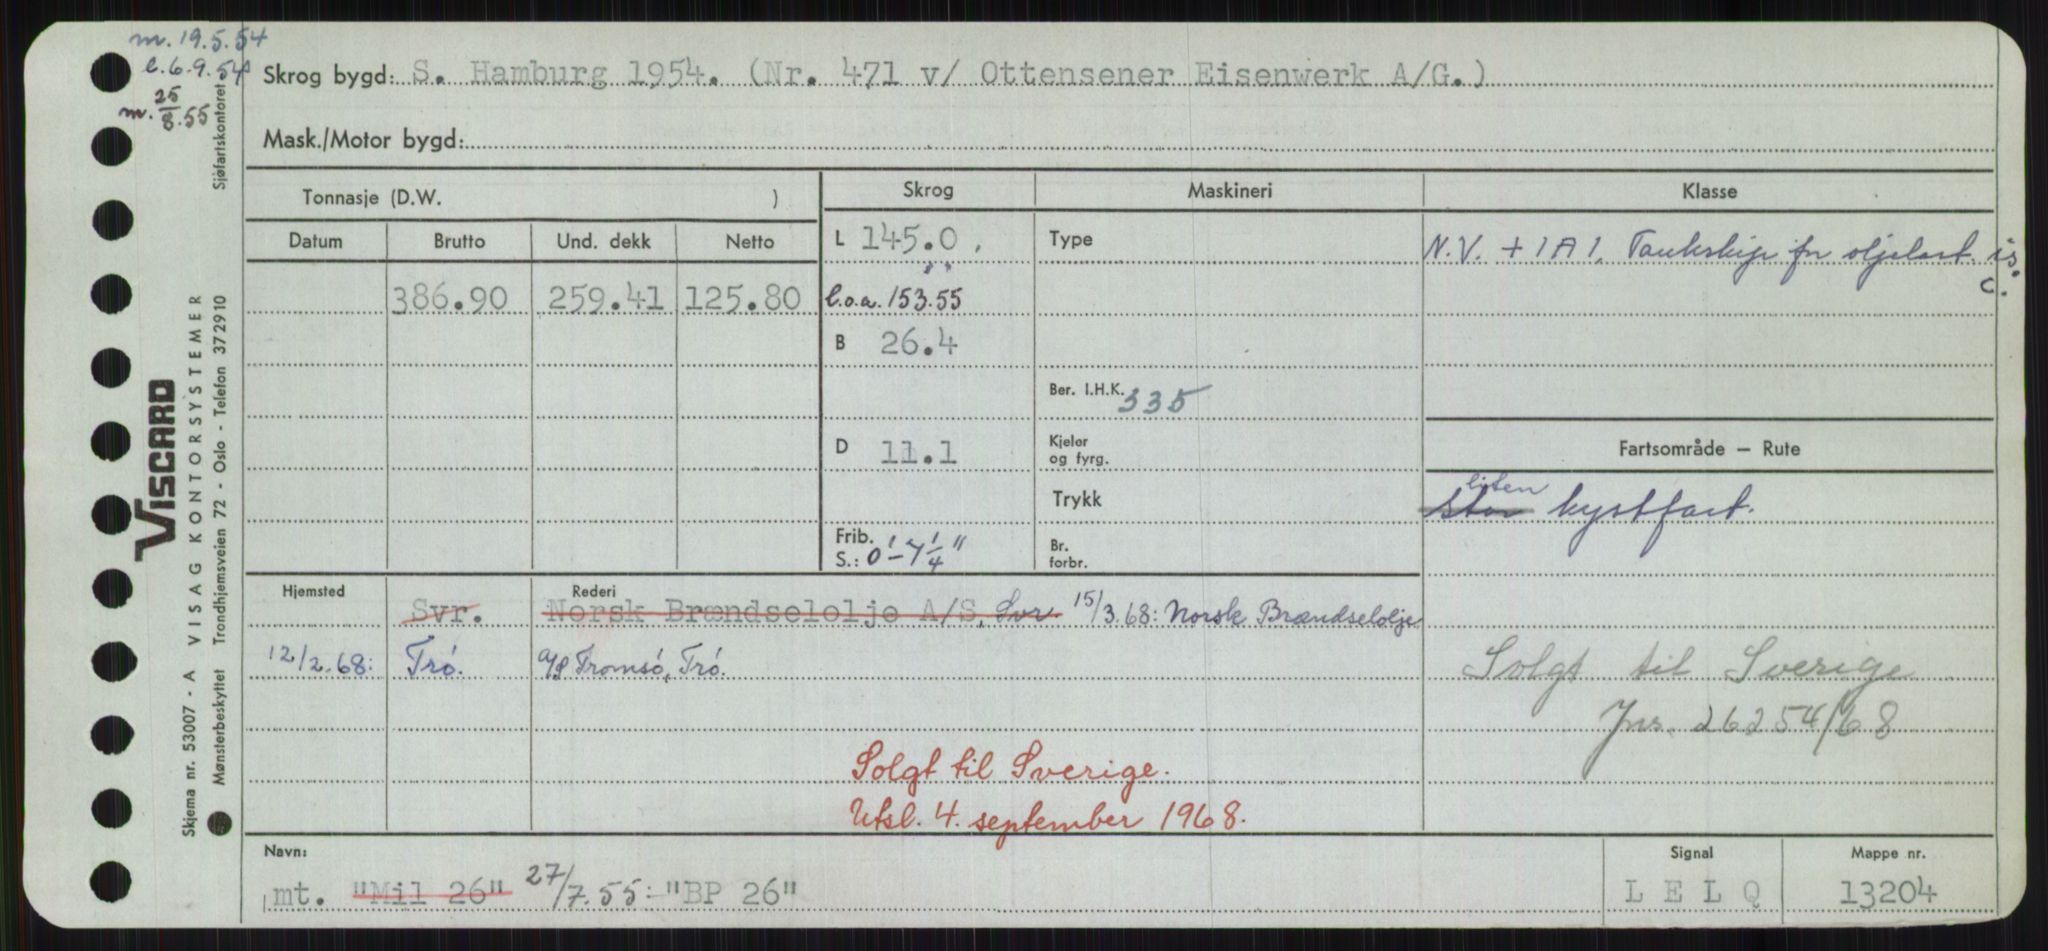 m. 19.5.54
l. 6.9.54
m. 25/8.55
Sjøfartskontoret
Skrog bygd: S. Hamburg 1954. (Nr. 471 v/ Ottensener Eisenwerk A/G.)
Mask./Motor bygd:
Tonnasje (D.W. )
Skrog
Maskineri
Klasse
Datum Brutto Und. dekk Netto
L 145.0,
Type
N.V. + 1A1. Tankskip for oljelast. is.
c.
386.90 259.41 125.80
l.o.a. 153.55
B 26.4
Ber. I.H.K. 335
D 11.1
Kjeler
og fyrg.
Fartsområde — Rute
Trykk
liten
stor kystfart.
Frib.
S.: 0'-7 1/4"
Br.
forbr.
Hjemsted
Rederi
Svr. Norsk Brændselolje A/S, Svr. 15/3.68: Norsk Brændselolje
12/2.68: Trö. a/s Tromsö, Trö.
Solgt til Sverige
Jnr. 26254/68
Solgt til Sverige.
Utsl. 4. september 1968.
Navn:
mt. "Mil 26" 27/7.55:- "BP 26"
Signal
L E L Q
Mappe nr.
13204
VISCARD
Skjema nr. 53007 - A VISAG KONTORSYSTEMER
Mønsterbeskyttet Trondhjemsveien 72 - Oslo - Telefon 372910